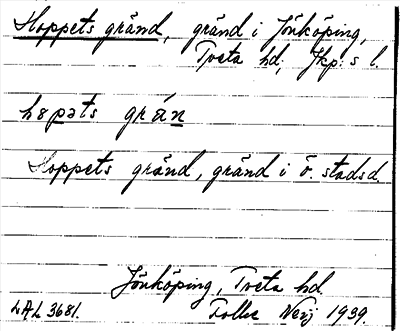 Hoppets gränd, gränd i Jönköping,
Tveta hd, Jkp:s l.
h8pəts grän
Hoppets gränd, gränd i ö. stadsd.
Jönköping, Tveta hd.
LAL 3681. Folke Nerj 1939.